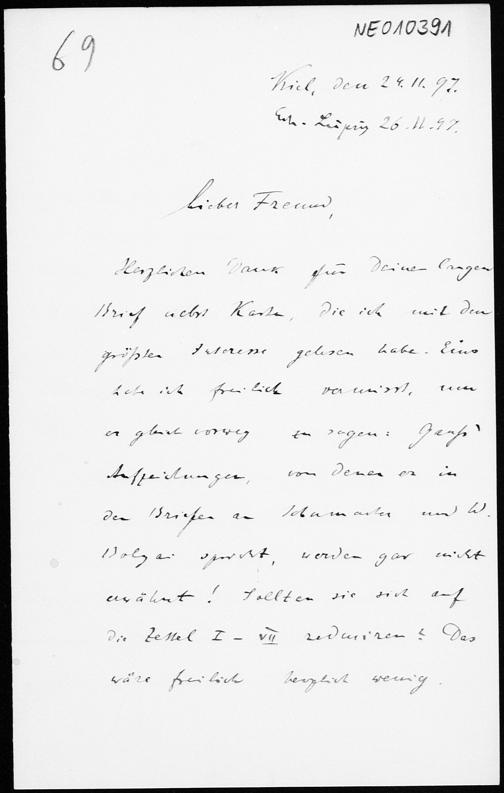 69
NE010391
Kiel, den 24.11.97.
Erh. Leipzig 26.11.97.
Lieber Freund,
Herzlichen Dank für Deinen langen
Brief nebst Karte, die ich mit dem
größten Interesse gelesen habe. Eins
habe ich freilich vermisst, um
es gleich vorweg zu sagen: Gauß'
Aufzeichnungen, von denen er in
den Briefen an Schumacher und W.
Bolyai spricht, werden gar nicht
erwähnt! Sollten sie sich auf
die Zettel I – VII reduziren? Das
wäre freilich herzlich wenig.